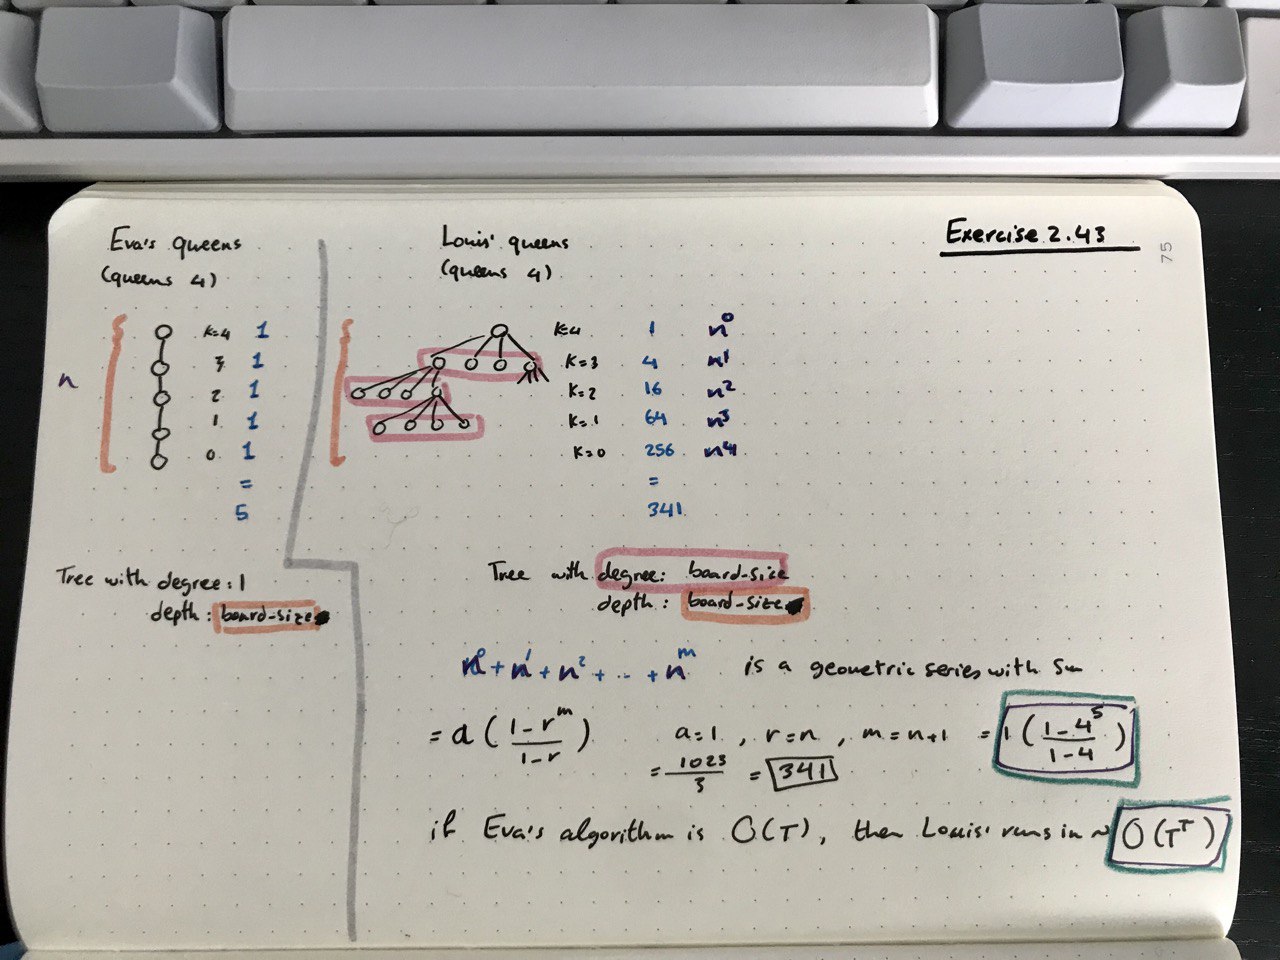 Exercise 2.43
75
Eva's queens
(queens 4)
n
k=4 1
3 1
2 1
1 1
0 1
=
5
Tree with degree: 1
depth: board-size
Louis' queens
(queens 4)
k=4 1 n⁰
k=3 4 n¹
k=2 16 n²
k=1 64 n³
k=0 256 n⁴
=
341
Tree with degree: board-size
depth: board-size
n⁰ + n¹ + n² + ... + n^m is a geometric series with
= a ( (1-r^m) / (1-r) ) a=1, r=n, m=n+1 = 1 ( (1-4⁵) / (1-4) )
= 1023 / 3 = 341
if Eva's algorithm is O(T), then Louis' runs in ~ O(T^T)